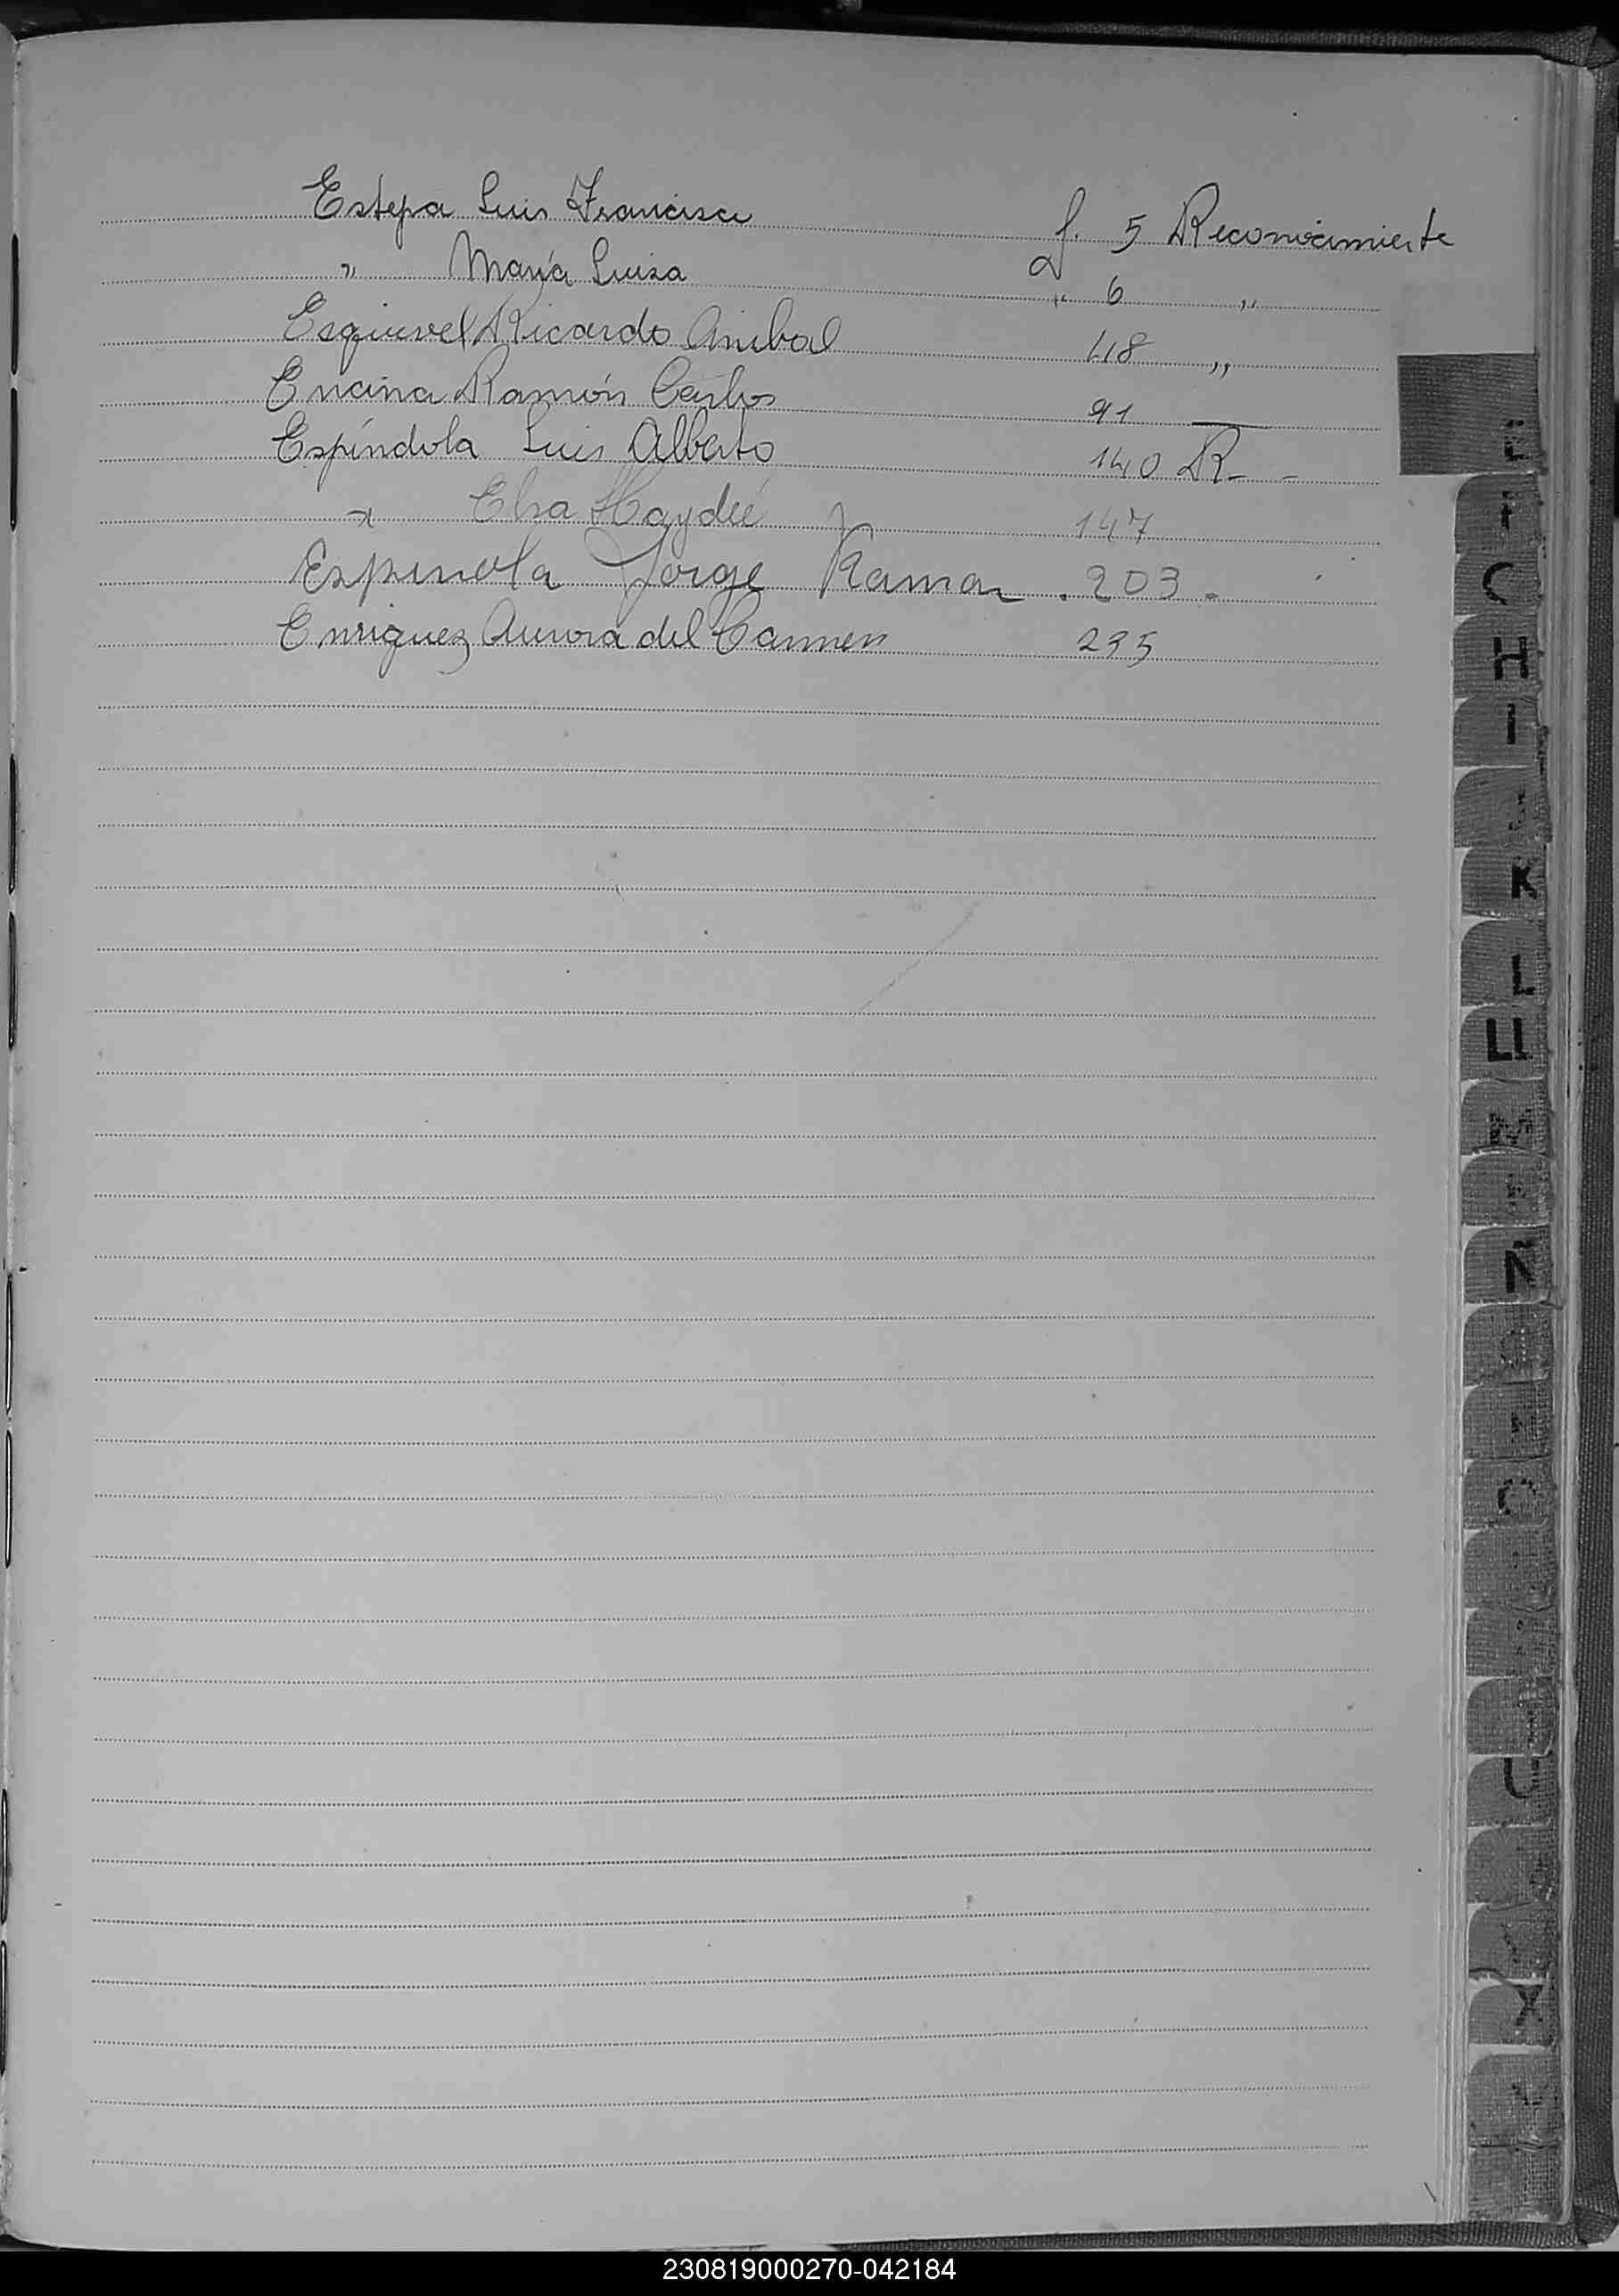 Estepa Luis Francisco f. 5 Reconocimiento
" María Luisa " 6 "
Esquivel Ricardo Anibal 48 "
Encina Ramón Carlos 91 —
Espíndola Luis Alberto 140 R - -
" Elsa Haydeé 147
Espinola Jorge Ramon . 203 -
Enriquez Aurora del Carmen 235
E
F
C
H
I
K
L
LL
N
U
X
230819000270-042184